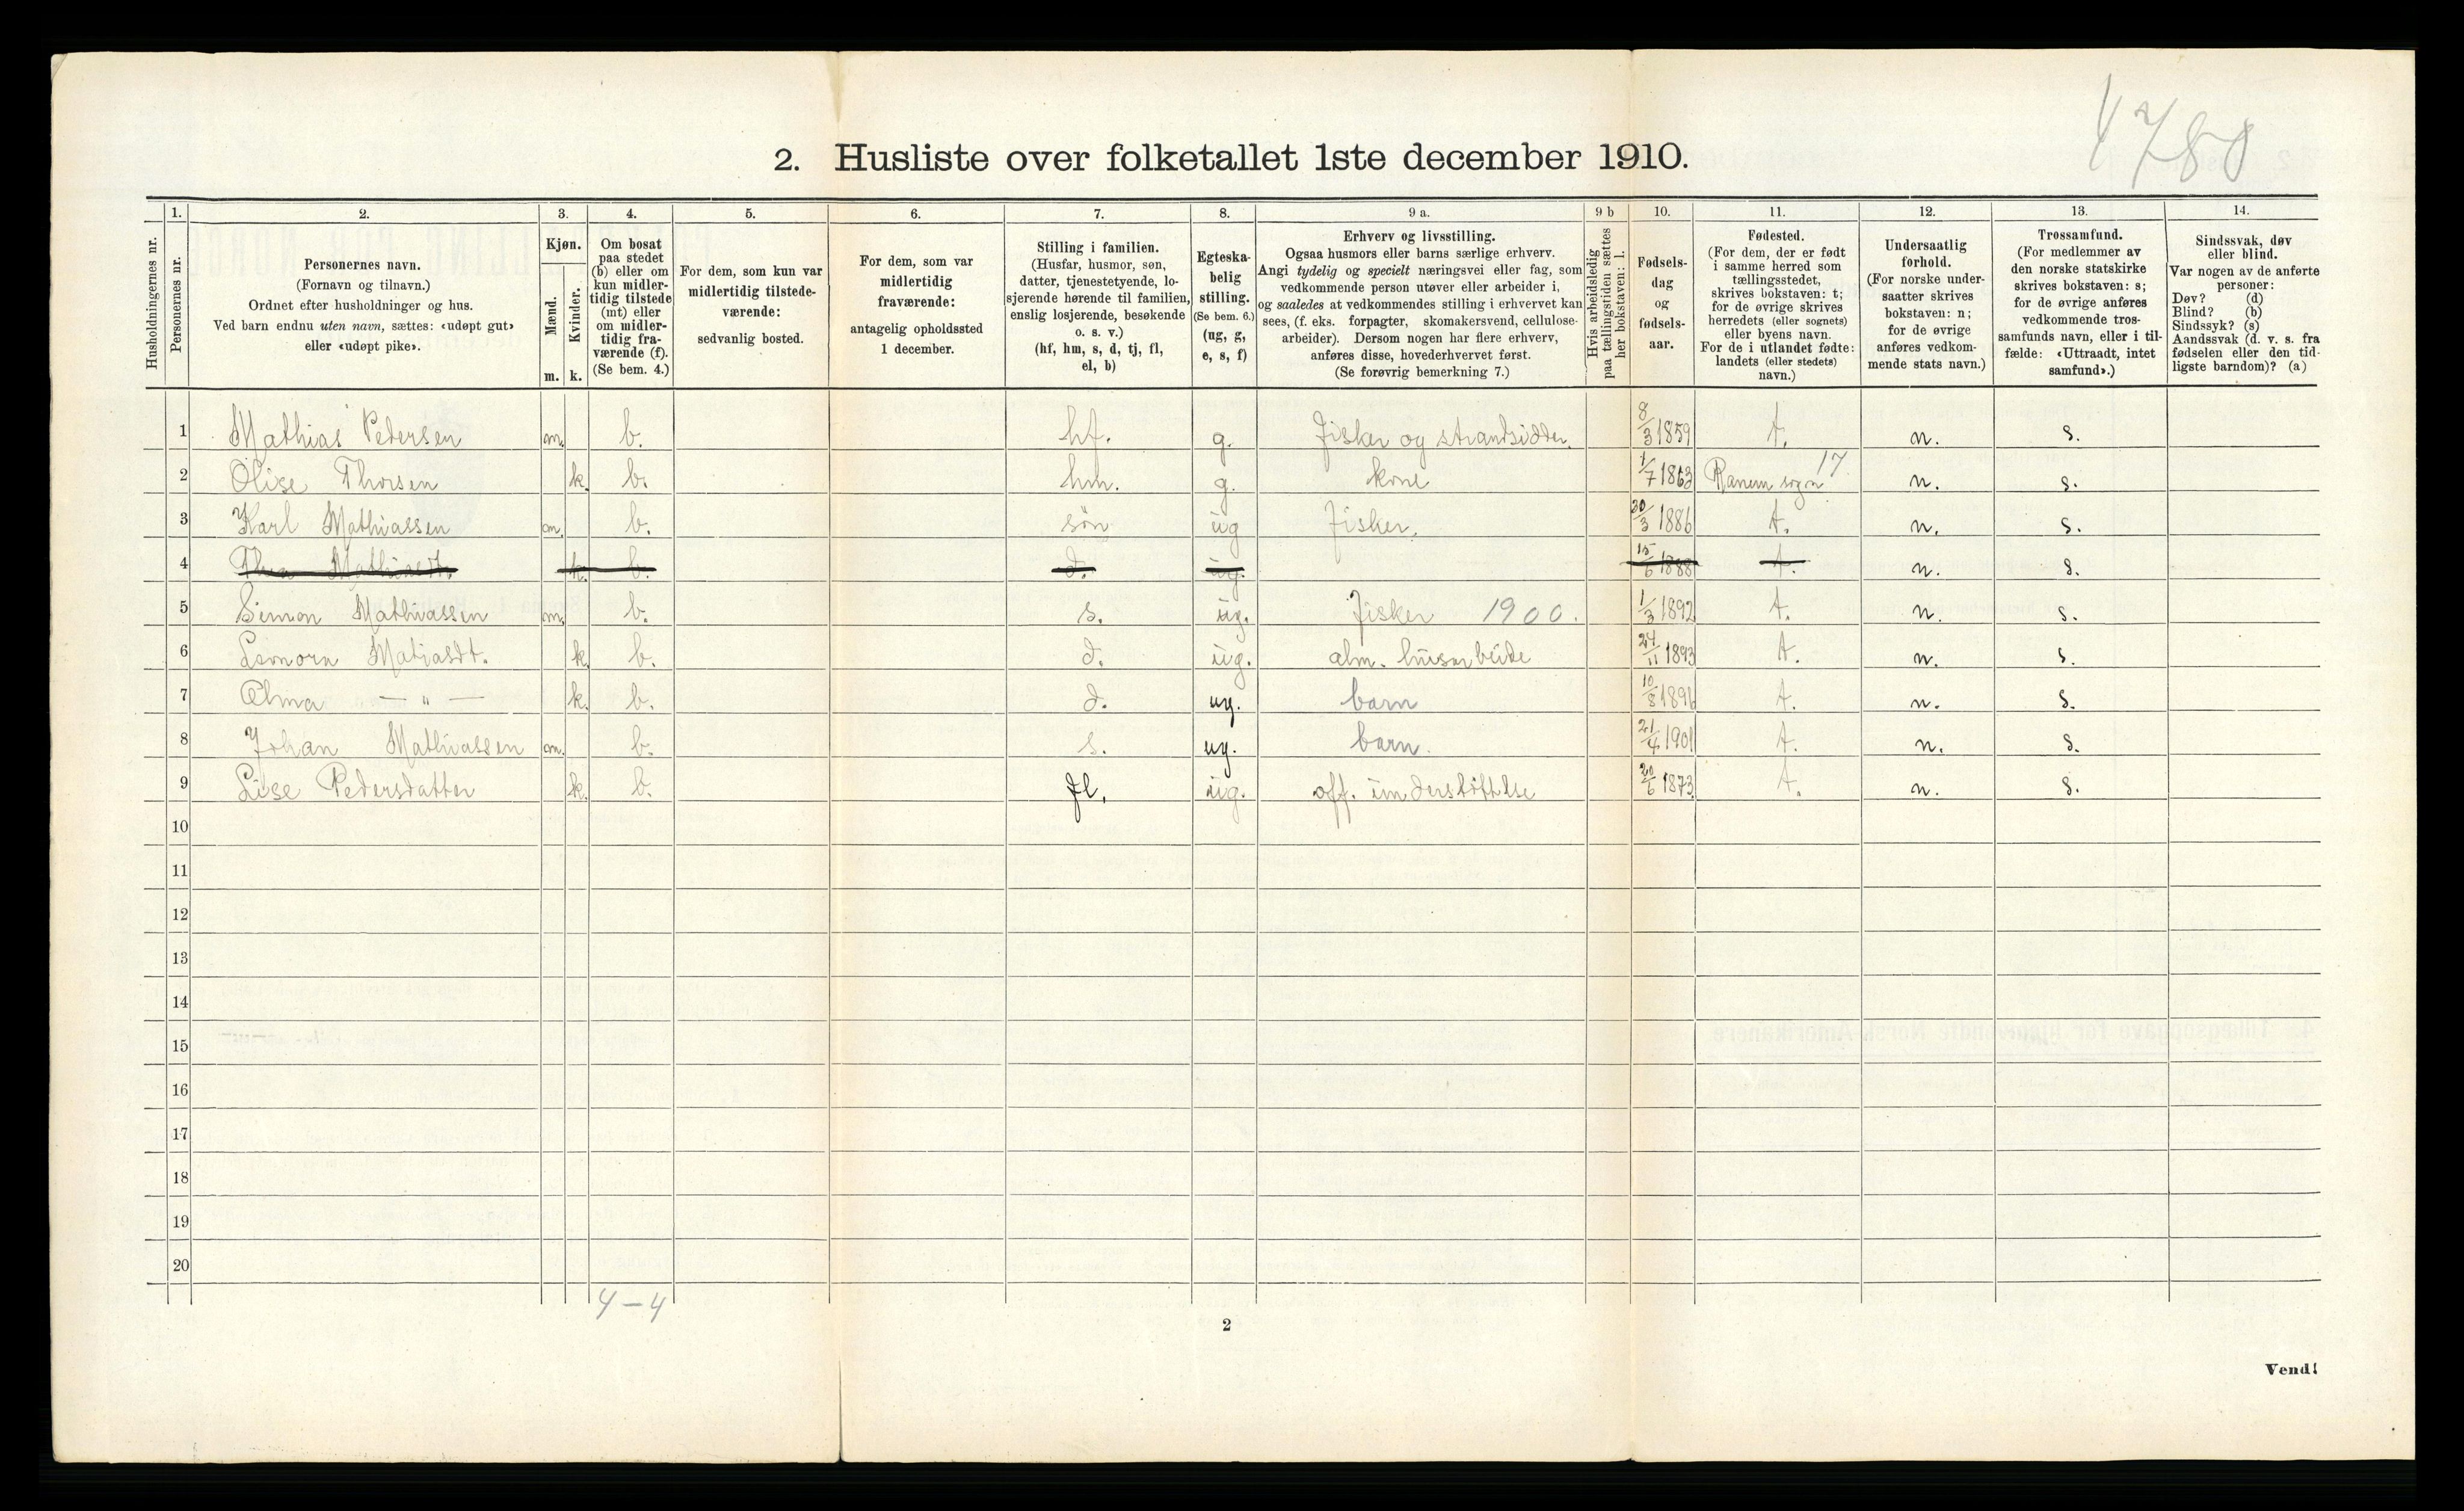 4780
2. Husliste over folketallet 1ste december 1910.
Husholdningernes nr.
1. Personernes nr.
2. Personernes navn.
(Fornavn og tilnavn.)
Ordnet efter husholdninger og hus.
Ved barn endnu uten navn, sættes: «udøpt gut»
eller «udøpt pike».
3. Kjøn.
Mænd. m.
Kvinder. k.
4. Om bosat
paa stedet
(b) eller om
kun midler-
tidig tilstede
(mt) eller
om midler-
tidig fra-
værende (f).
(Se bem. 4.)
5. For dem, som kun var
midlertidig tilstede-
værende:
sedvanlig bosted.
6. For dem, som var
midlertidig
fraværende:
antagelig opholdssted
1 december.
7. Stilling i familien.
(Husfar, husmor, søn,
datter, tjenestetyende, lo-
sjerende hørende til familien,
enslig losjerende, besøkende
o. s. v.)
(hf, hm, s, d, tj, fl,
el, b)
8. Egteska-
belig
stilling.
(Se bem. 6.)
(ug, g,
e, s, f)
9 a. Erhverv og livsstilling.
Ogsaa husmors eller barns særlige erhverv.
Angi tydelig og specielt næringsvei eller fag, som
vedkommende person utøver eller arbeider i,
og saaledes at vedkommendes stilling i erhvervet kan
sees, (f. eks. forpagter, skomakersvend, cellulose-
arbeider). Dersom nogen har flere erhverv,
anføres disse, hovederhvervet først.
(Se forøvrig bemerkning 7.)
9 b Hvis arbeidsledig
paa tællingstiden sættes
her bokstaven: l.
10. Fødsels-
dag
og
fødsels-
aar.
11. Fødested.
(For dem, der er født
i samme herred som
tællingsstedet,
skrives bokstaven: t;
for de øvrige skrives
herredets (eller sognets)
eller byens navn.
For de i utlandet fødte:
landets (eller stedets)
navn.)
12. Undersaatlig
forhold.
(For norske under-
saatter skrives
bokstaven: n;
for de øvrige
anføres vedkom-
mende stats navn.)
13. Trossamfund.
(For medlemmer av
den norske statskirke
skrives bokstaven: s;
for de øvrige anføres
vedkommende tros-
samfunds navn, eller i til-
fælde: «Uttraadt, intet
samfund».)
14. Sindssvak, døv
eller blind.
Var nogen av de anførte
personer:
Døv? (d)
Blind? (b)
Sindssyk? (s)
Aandssvak (d. v. s. fra
fødselen eller den tid-
ligste barndom)? (a)
1 Mathias Pedersen m. b. hf. g. Fisker og strandsidder. 8/3 1859 t. n. s.
2 Olise Thorsen k. b. hm. g. kone 1/7 1863 Ranem sogn 17 n. s.
3 Karl Mathiassen m. b. søn ug Fisker. 30/3 1886 t. n. s.
4 Thea Mathiasdt. k. b. d. ug. 15/6 1888 t. n. s.
5 Simon Mathiassen m. b. s. ug. Fisker 1900. 1/3 1892 t. n. s.
6 Lenora Matiasdt. k. b. d. ug. alm. husarbeide 24/11 1893 t. n. s.
7 Alma — " — k. b. d. ug. barn 10/8 1896 t. n. s.
8 Johan Mathiassen m. b. s. ug. barn. 21/4 1901 t. n. s.
9 Lise Pedersdatter k. b. fl. ug. off. understøttelse 20/6 1873. t. n. s.
10
11
12
13
14
15
16
17
18
19
20
4 — 4
2
Vend!